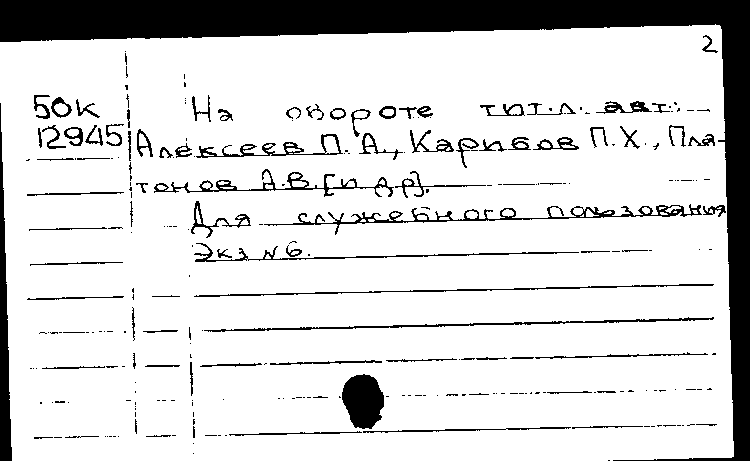 2
50к На обороте тит.л. авт.:
12945 Алексеев П.А., Карибов П.Х., Пла-
тонов А.В. [и др].
Для служебного пользования
Экз N6.